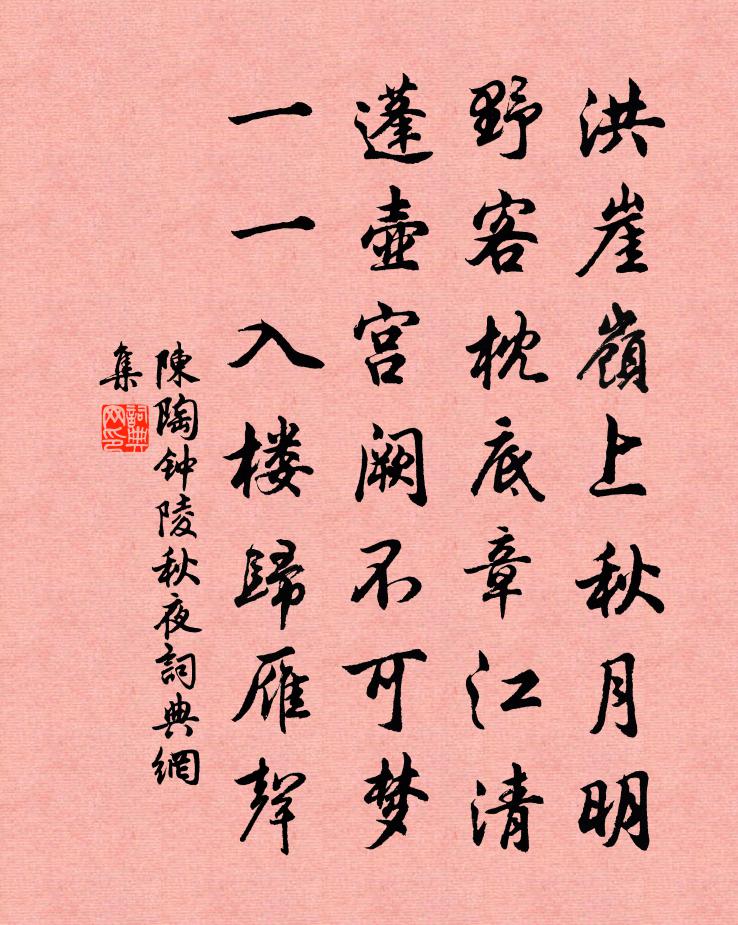 洪崖嶺上秋月明
野客枕底章江清
蓬壺宮闕不可梦
一一入楼歸雁聲
陳陶钟陵秋夜詞典網
集
詞典
网印